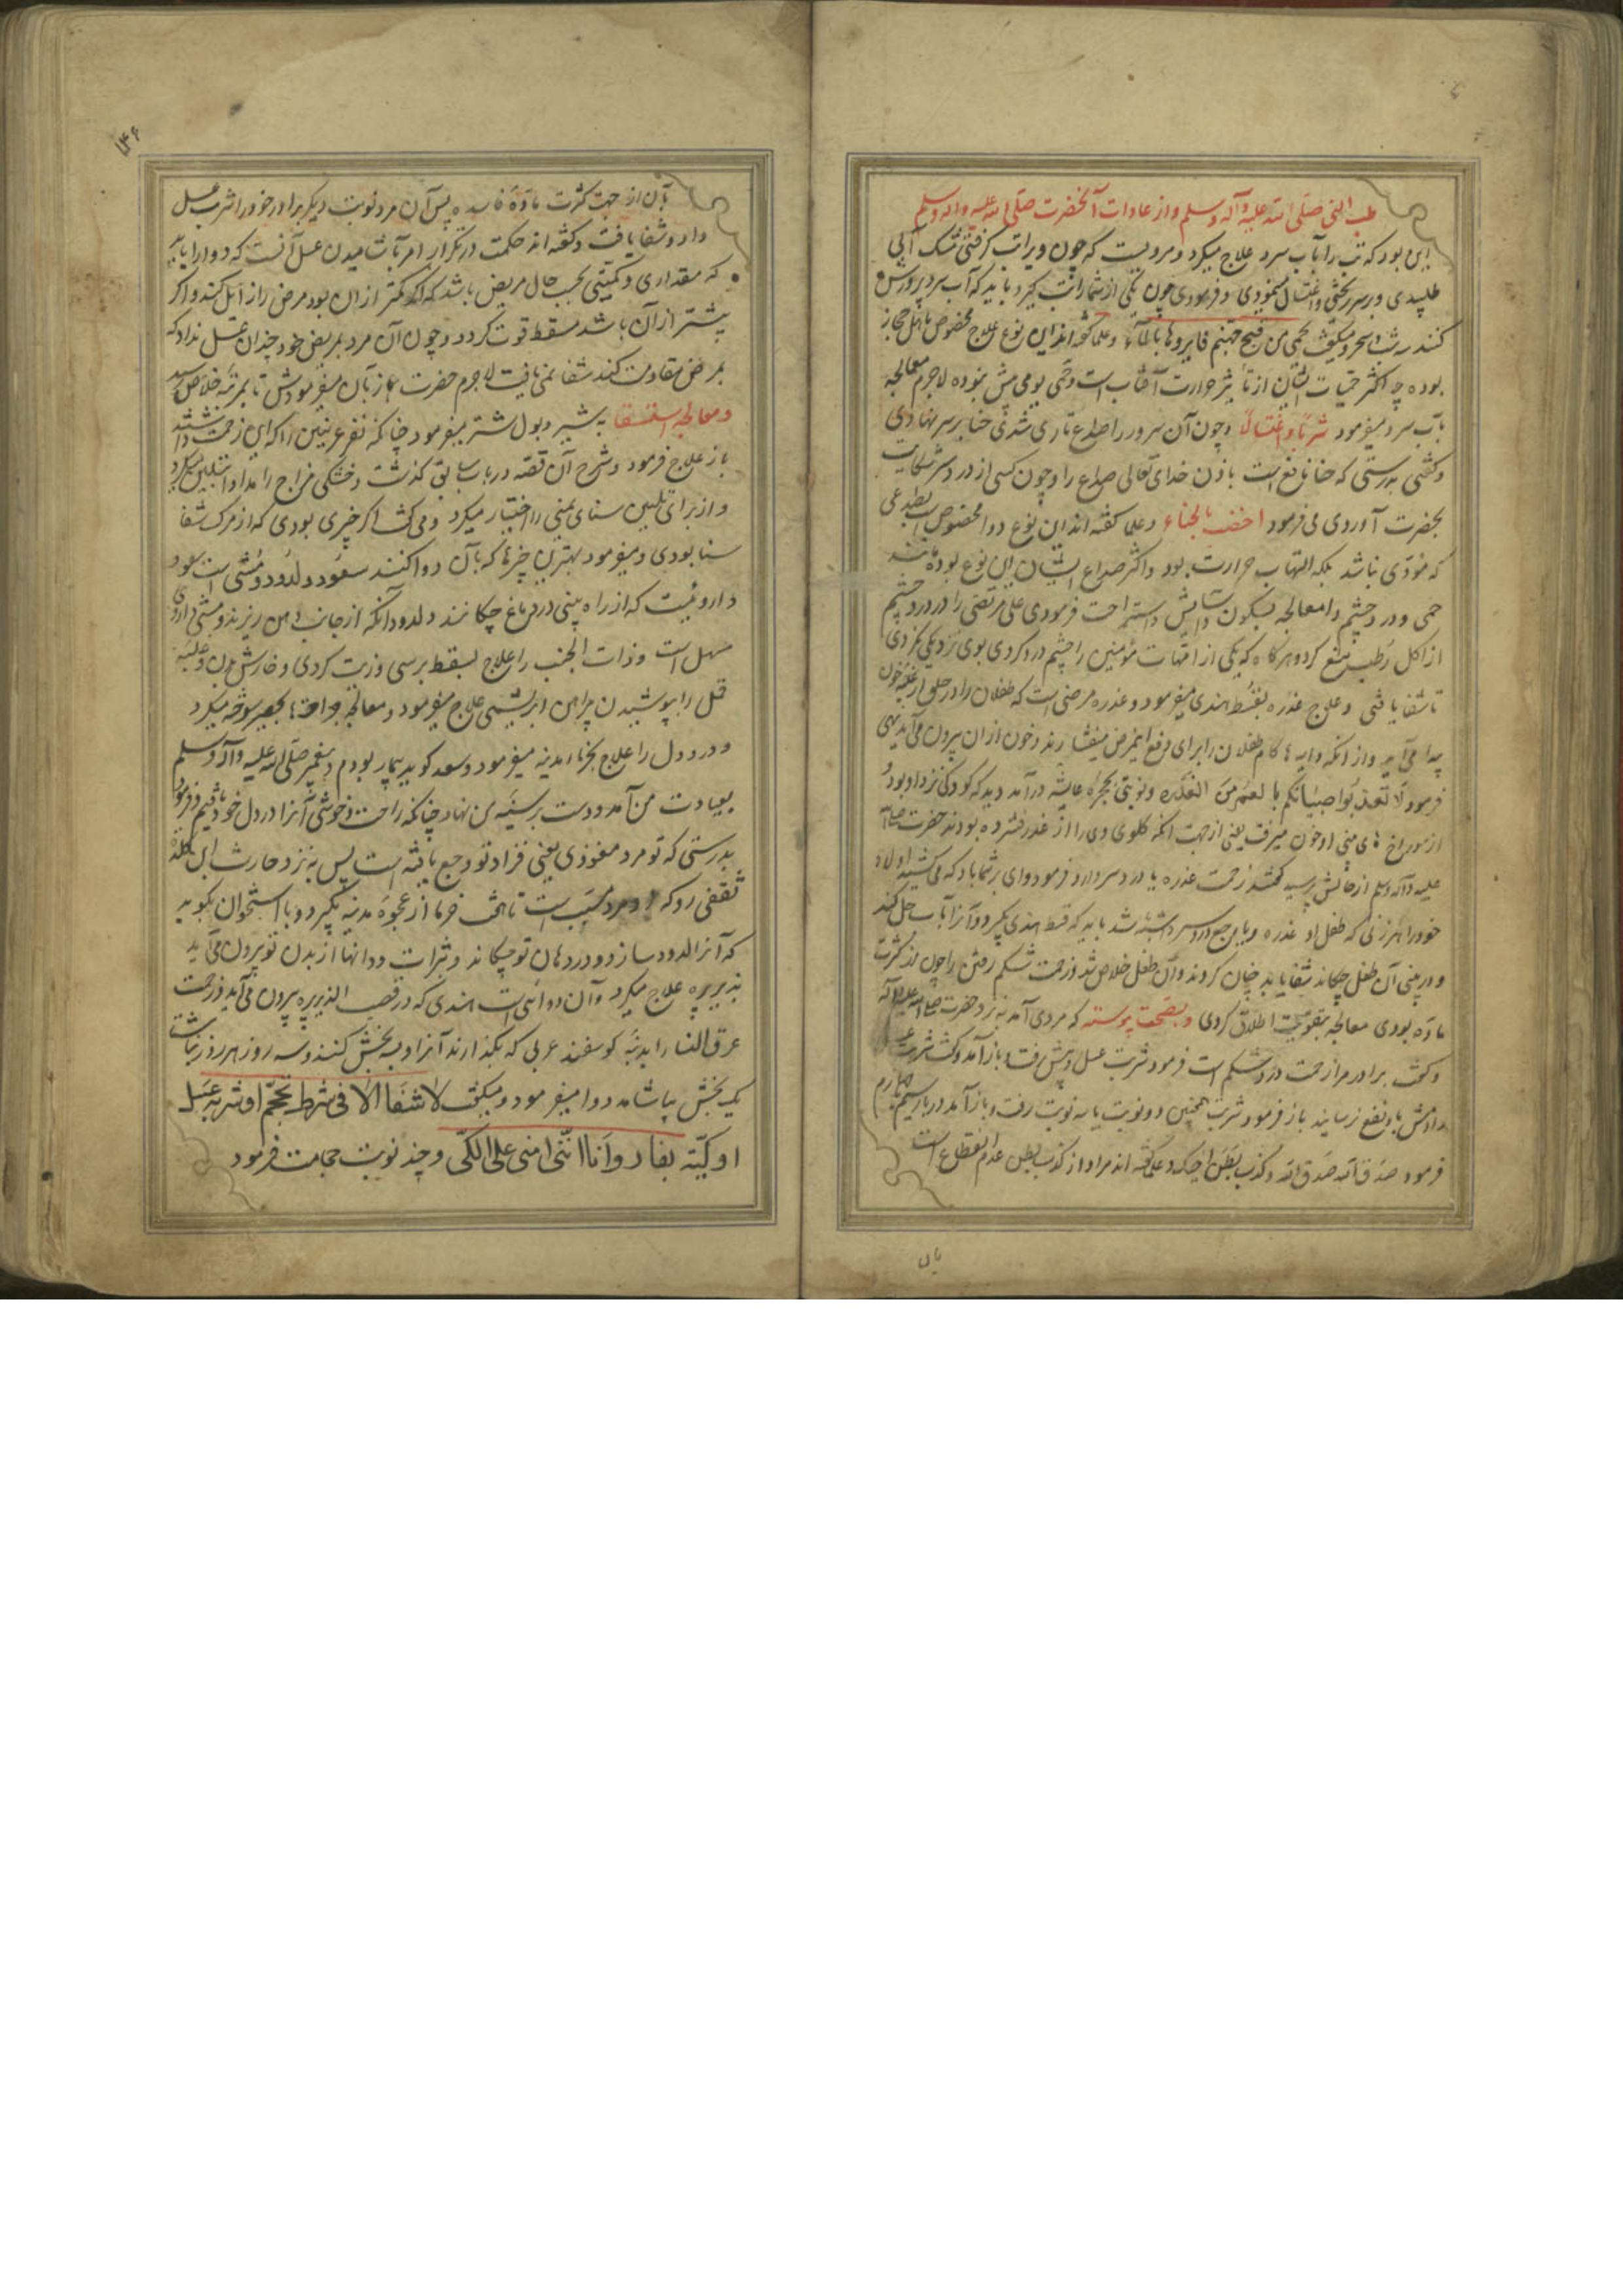 طب النبی صلی الله علیه وآله وسلم واز عادات آنحضرت صلی الله علیه واله وسلم
این بود که تب را بآب سرد علاج میکرد و مرویست که چون ویرا تب کرفتی مشک آبی
طلبیدی و بر سر ریختی و اغتسال نمودی و فرمودی چون یکی از شما را تب کیرد باید که آب سرد برویش
کنند سه شب سحر و میکفت الحمی من فیح جهنم فابردوها بالماء وعلما کفته اند این نوع علاج مخصوص باهل حجاز
بوده چه اکثر حمیات ایشان از تأثیر حرارت آفتاب است و حمی یومی بیش نبوده لاجرم معالجه
بآب سرد میفرمود شرباً و اغتسالاً و چون آن سرور را صداع طاری شدی حنا بر سر نهادی
وکفتی بدرستی که حنا نافع است باذن خدای تعالی صداع را و چون کسی از درد سر شکایت
بحضرت آوردی می فرمود اخضب بالحناء وعلما کفته اند این نوع دوا مخصوص است بصداعی
که مؤدی نباشد بلکه التهاب حرارت بود واکثر صداع ایشان این نوع بوده باشد
حمی و درد چشم را معالجه بسکون و آسایش و استراحت فرمودی علی مرتضی را در درد چشم
از اکل رطب منع کرد و هرکاه که یکی از امهات مؤمنین را چشم درد کردی بوی نزدیکی نکردی
تا شفا یافتی وعلاج عذره بقسط هندی میفرمود و عذره مرضی است که طفلان را در حلق از غلبه خون
پیدا می آید و از انکه دایه ها کام طفلان را برای دفع این مرض میفشارند و خون از ان بیرون می آید نهی
فرمود لا تعذبوا صبیانکم بالغمز من العذره ونوبتی بحجره عایشه درآمد دید که کودکی نزد او بود
از سوراخ های بینی او خون میرفت یعنی از جهت انکه کلوی وی را از عذره فشرده بودند حضرت
علیه وآله وسلم از حالش پرسید کفتند زحمت عذره یا درد سر دارد فرمود وای بر شما باد که می کشید اولاد
خود را هر زنی که طفل او عذره ویا وجع درد سر داشته باشد باید که قسط هندی بکیرد و آنرا بآب حل کند
و در بینی آن طفل چکاند شفا یابد چنان کردند وآن طفل خلاص شد و زحمت شکم رفتن را چون از کثرت
ماده بودی معالجه بتقویت اطلاق کردی و بصحت پیوسته که مردی آمد بنزد حضرت
وکفت برادر مرا زحمت درد شکم است فرمود شربت عسل دهش رفت و باز آمد وکفت شربت عسل
دادمش باو نفع نرسانید باز فرمود شربت همچنین دو نوبت یا سه نوبت رفت و باز آمد در بار سیم یا چهارم
فرمود صدق الله وکذب بطن اخیک وعلما کفته اند مراد از کذب بطن عدم انقطاع است
بان
۱۴۶
بآن از جهت کثرت مادۀ فاسده پس آن مرد نوبت دیکر برادر خود را شربت عسل
داد و شفا یافت وکفته اند حکمت در تکرار امر بآشامیدن عسل آنست که دوا را باید
که مقداری و کمیتی بحسب حال مریض باشد که اکر کمتر از ان بود مرض را زایل نکند و اکر
بیشتر از آن باشد مسقط قوت کردد و چون آن مرد بمریض خود چندان عسل نداد که
بمرض مقاومت کند شفا نمی یافت لاجرم حضرت باز بآن میفرمودش تا بمرتبه خلاص رسید
و معالجه استسقا به شیر و بول شتر میفرمود چنانکه نفر عرنیین را که این زحمت داشتند
باز علاج فرمود وشرح آن قصه در باب سابق کذشت و خشکی مزاج را مداوا بتلیین میکرد
و از برای تلیین سنای مکی را اختیار میکرد ومی کفت اکر چیزی بودی که از مرک شفا
سنا بودی ومیفرمود بهترین چیزها که بآن دوا کنند سعوط و لدود و مشی است سعوط
داروئیست که از راه بینی در دماغ چکانند و لدود آنکه از جانب دهن ریزند و مشی داروی
مسهل است وذات الجنب را علاج بقسط بحری و زیت کردی و خارش بدن و غلبه
قمل را بپوشیدن پیراهن ابریشمی علاج میفرمود و معالجه جراحت بحصیر سوخته میکرد
و درد دل را علاج بخرمای مدینه میفرمود و سعد کوید بیمار بودم و پیغمبر صلی الله علیه وآله وسلم
بعیادت من آمد و دست بر سینه من نهاد چنانکه راحت و خوشی آنرا در دل خود یافتم و فرمود
بدرستی که تو مرد مفئودی یعنی فؤاد تو وجع یافته است پس به نزد حارث ابن کلده
ثقفی رو که او مرد طبیب است تا هفت خرما از عجوۀ مدینه بکیرد وبا استخوان بکوبد
که آنرا لدود سازد و در دهان تو چکاند وبثرات و دانها از بدن تو بیرون می آید
بذریره علاج میکرد وآن دوائی است هندی که در قصب الذریره بیرون می آید وزحمت
عرق النسا را بدنبۀ کوسفند عربی که بکدازند آنرا وسه بخش کنند وسه روز هر روز ناشتا
یک بخش بیاشامد دوا میفرمود ومیکفت لا شفا الا فی شرطة محجم او شربة عسل
او کیّة بنار وانا انهی امتی عن الکی و چند نوبت حجامت فرمود